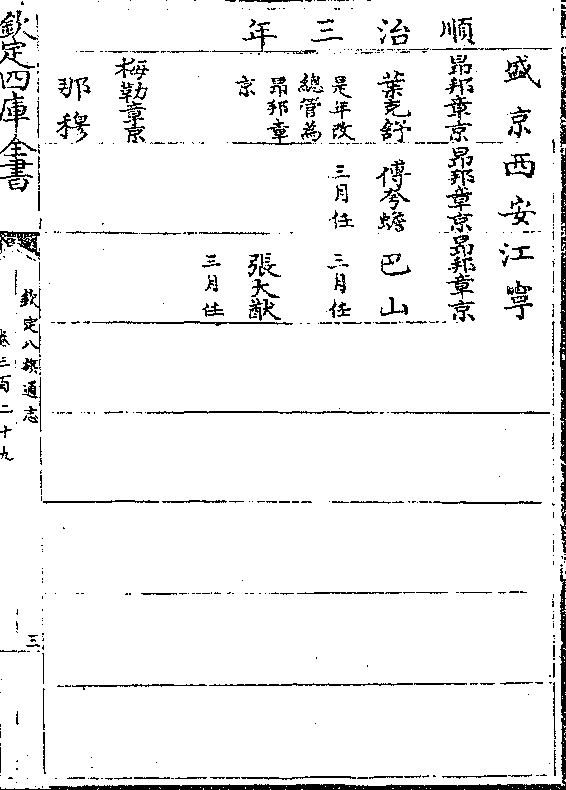 順治三年
盛京
昂邦章京
葉克舒
是年改
總管為
昂邦章
京
梅勒章京
那穆
西安
昂邦章京
傅夸蟾
三月任
江寧
昂邦章京
巴山
三月任
張大猷
三月任
欽定四庫全書
欽定八旗通志
卷三百二十九
三